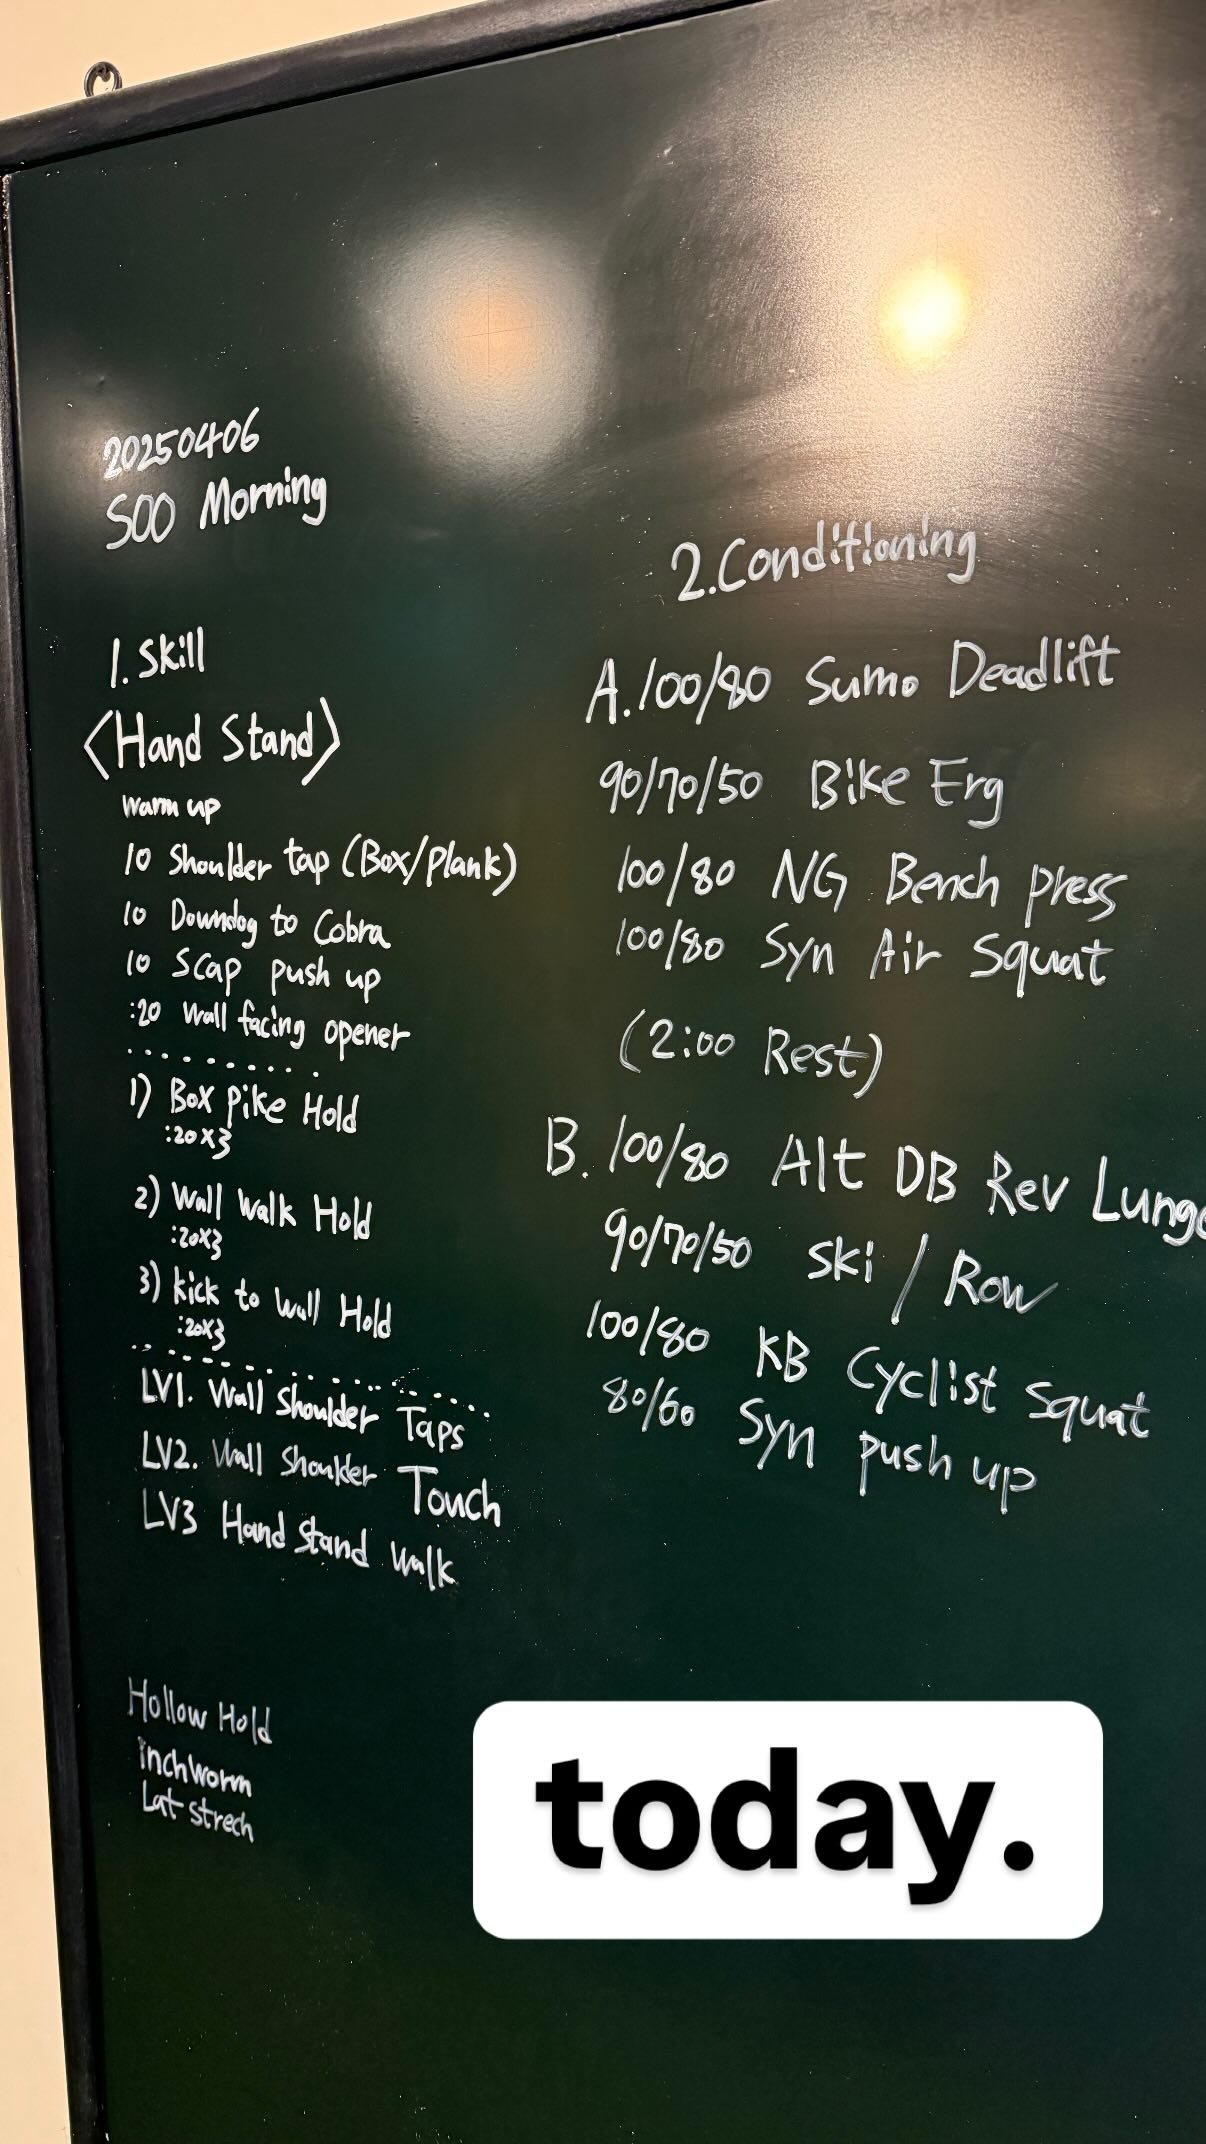 20250406
SOO Morning
1. Skill
<Hand Stand>
warm up
10 Shoulder tap (Box/Plank)
10 Downdog to Cobra
10 Scap push up
:20 Wall facing opener
.........
1) Box Pike Hold
:20x3
2) Wall Walk Hold
:20x3
3) Kick to Wall Hold
:20x3
LV1. Wall Shoulder Taps
LV2. Wall Shoulder Touch
LV3 Hand Stand Walk
Hollow Hold
inchworm
Lat strech
2.Conditioning
A.100/80 Sumo Deadlift
90/70/50 Bike Erg
100/80 NG Bench press
100/80 Syn Air Squat
(2:00 Rest)
B. 100/80 Alt DB Rev Lunge
90/70/50 Ski / Row
100/80 KB Cyclist Squat
80/60 Syn push up
today.